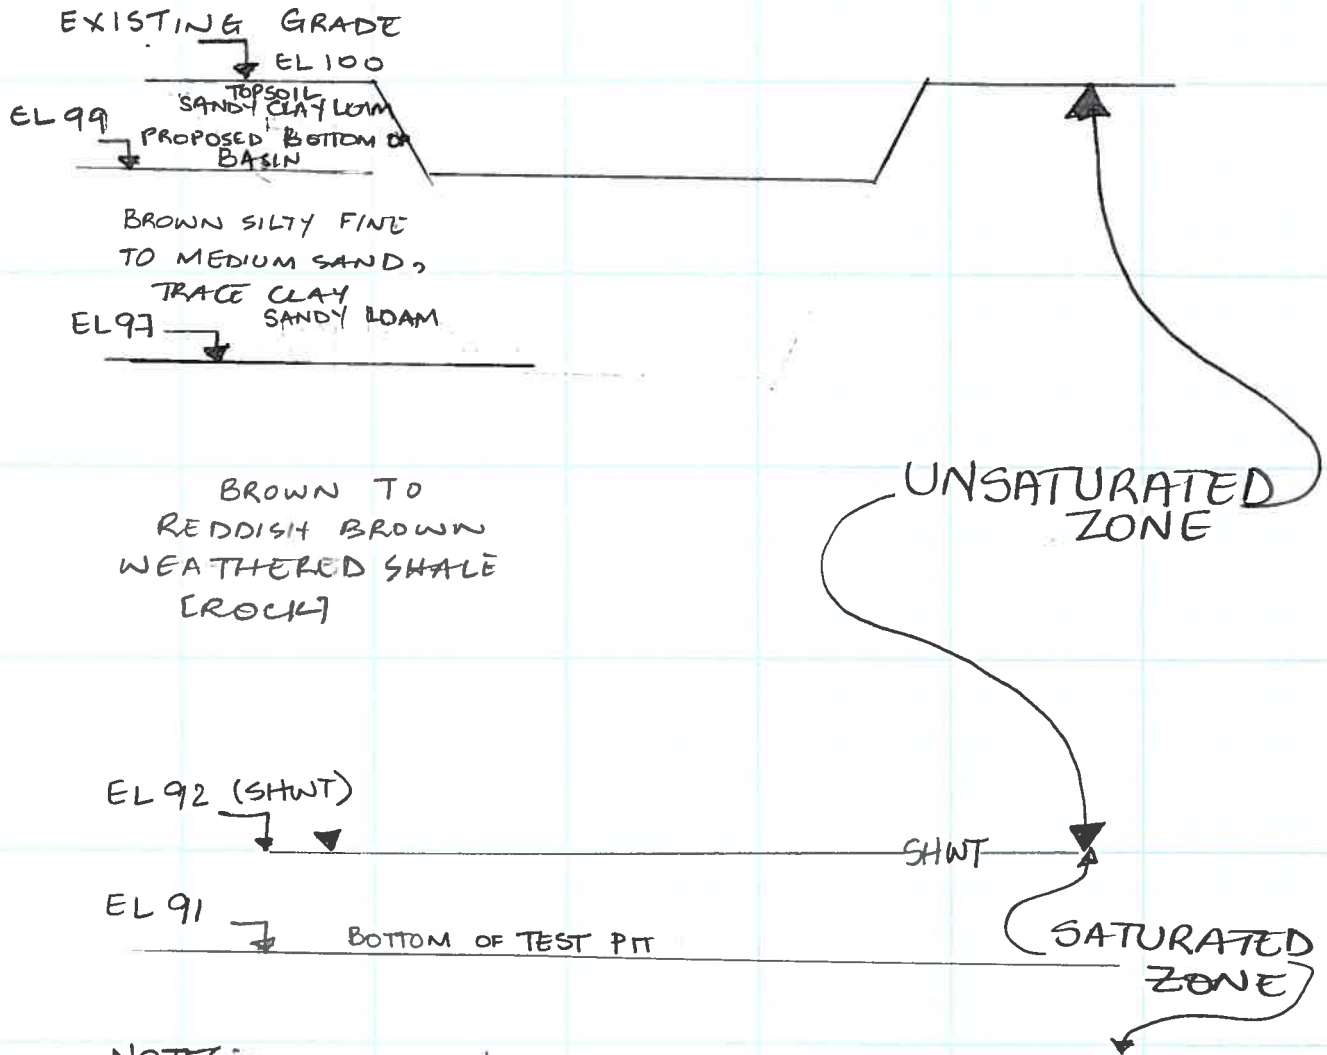 EXISTING GRADE
EL 100
TOPSOIL
SANDY CLAY LOAM
EL 99
PROPOSED BOTTOM OF
BASIN
BROWN SILTY FINE
TO MEDIUM SAND,
TRACE CLAY
SANDY LOAM
EL 97
UNSATURATED
ZONE
BROWN TO
REDDISH BROWN
WEATHERED SHALE
[ROCK]
EL 92 (SHWT)
SHWT
EL 91
BOTTOM OF TEST PIT
SATURATED
ZONE